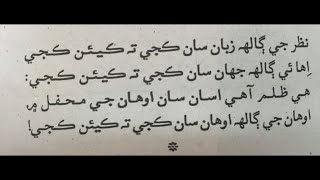 نظر جي ڳالهہ زبان سان ڪجي تہ ڪيئن ڪجي
اِها ئي ڳالهہ جهان سان ڪجي تہ ڪيئن ڪجي:
هي ظلم آهي اسان سان اوهان جي محفل ۾،
اوهان جي ڳالهہ اوهان سان ڪجي تہ ڪيئن ڪجي!